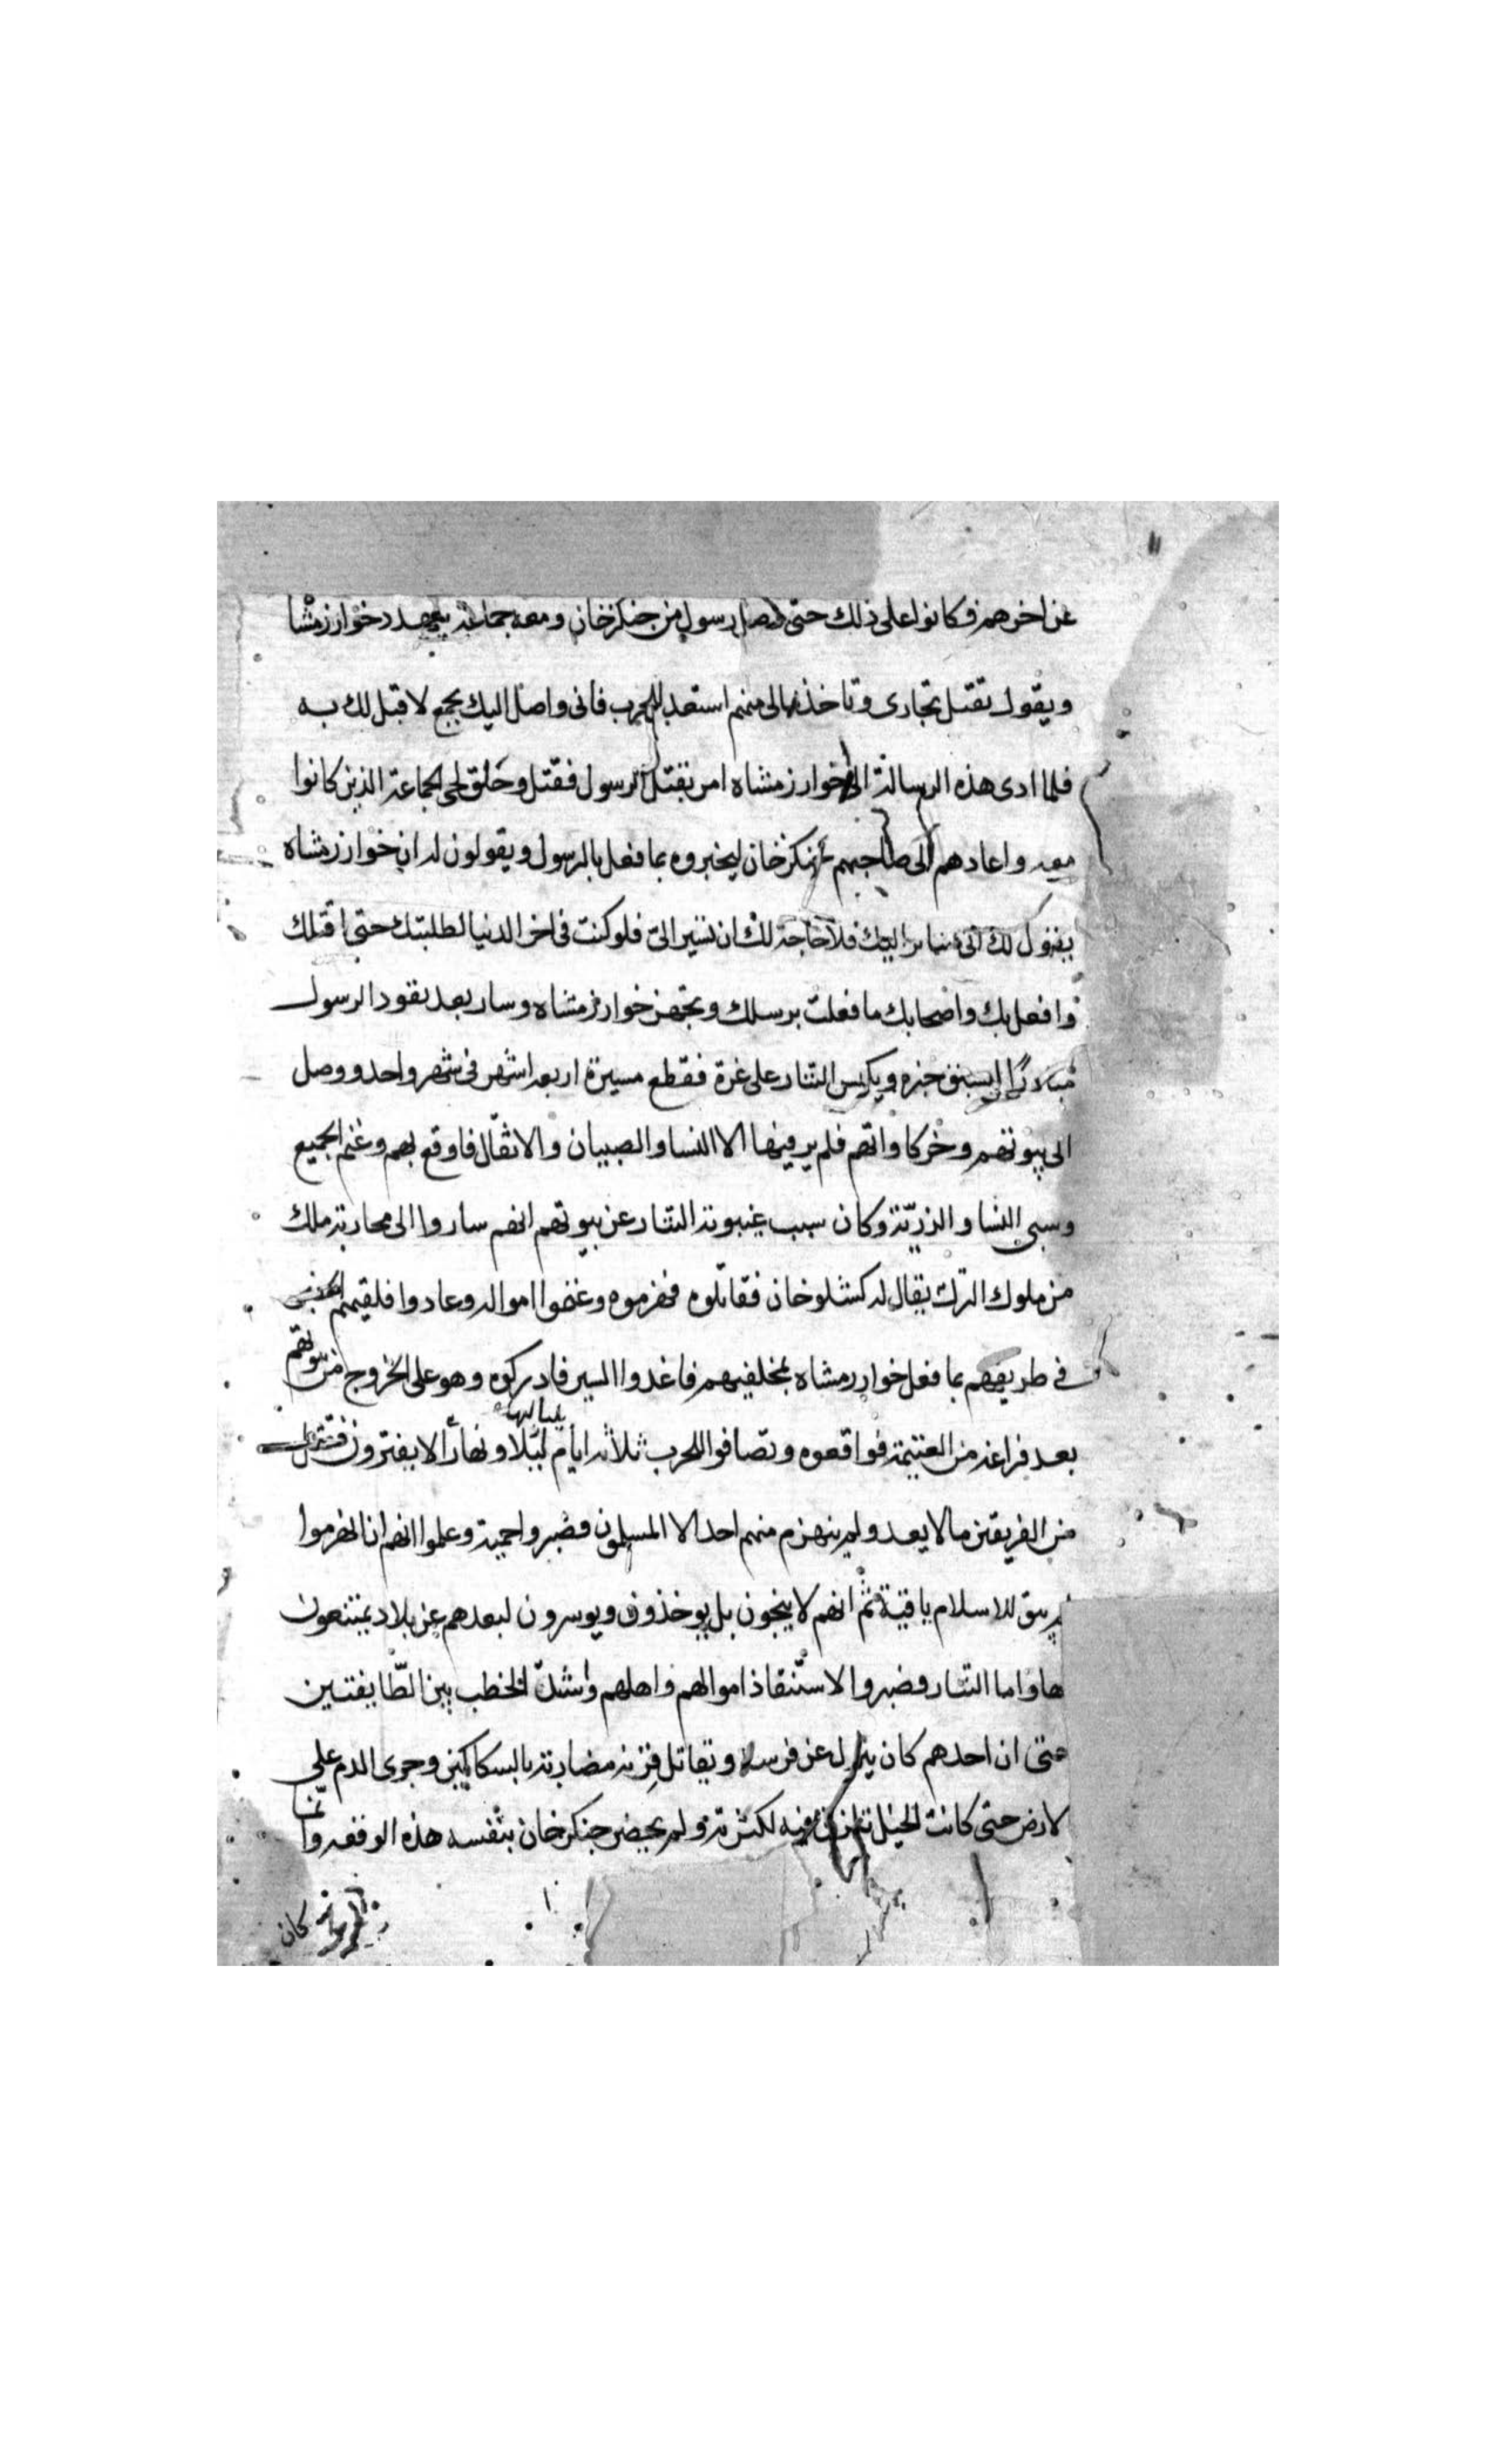 عن اخرهم فكانوا على ذلك حتى وصل رسول من جنكزخان ومعه جماعة يتهدد خوارزمشا
ويقول تقتل تجارى وتاخذ مالى منهم استعد للحرب فانى واصل اليك بجمع لا قبل لك به
فلما ادى هذه الرسالة الى خوارزمشاه امر بقتل الرسول فقتل وحلق لحى الجماعة الذين كانوا
معه واعادهم الى صاحبهم جنكزخان ليخبروه بما فعل بالرسول ويقولون له ان خوارزمشاه
يقول لك انى سائر اليك فلا حاجة لك ان تسير الىّ فلو كنت فى اخر الدنيا لطلبتك حتى اقتلك
وافعل بك واصحابك ما فعلت برسلك وتجهز خوارزمشاه وسار بعد نفود الرسول
مبادرًا ليسبق خبره ويكبس التتار على غرة فقطع مسيرة اربعة اشهر فى شهر واحد ووصل
الى بيوتهم وخركاواتهم فلم ير فيها الا النسا والصبيان والاثقال فاوقع بهم وغنم الجميع
وسبى النسا والذريّة وكان سبب غيبوبة التتار عن بيوتهم انهم ساروا الى محاربة ملك
من ملوك الترك يقال له كشلوخان فقاتلوه فهزموه وغنموا امواله وعادوا فلقيهم الخبر
فى طريقهم بما فعل خوارزمشاه بمخلفيهم فاغدوا السير فادركوه وهو على الخروج من بيوتهم
بعد فراغه من الغنيمة فواقعوه وتصافوا للحرب ثلاثة ايام بلياليها ليلا ونهارًا لا يفترون فقتل
من الفريقين ما لا يعد ولم ينهزم منهم احد الا المسلمون فصبروا حمية وعلموا انهم ان انهزموا
لم يبق للاسلام باقية ثم انهم لا ينجون بل يوخذون ويوسرون لبعدهم عن بلاد يمتنعون
بها واما التتار فصبروا لاستنقاذ اموالهم واهلهم واشتدّ الخطب بين الطّايفتين
حتى ان احدهم كان ينزل عن فرسه ويقاتل قرنه مضاربة بالسكاكين وجرى الدم على
لارض حتى كانت الخيل تزلق فيه لكثرته ولم يحضر جنكزخان بنفسه هذه الوقعة وانما
كان